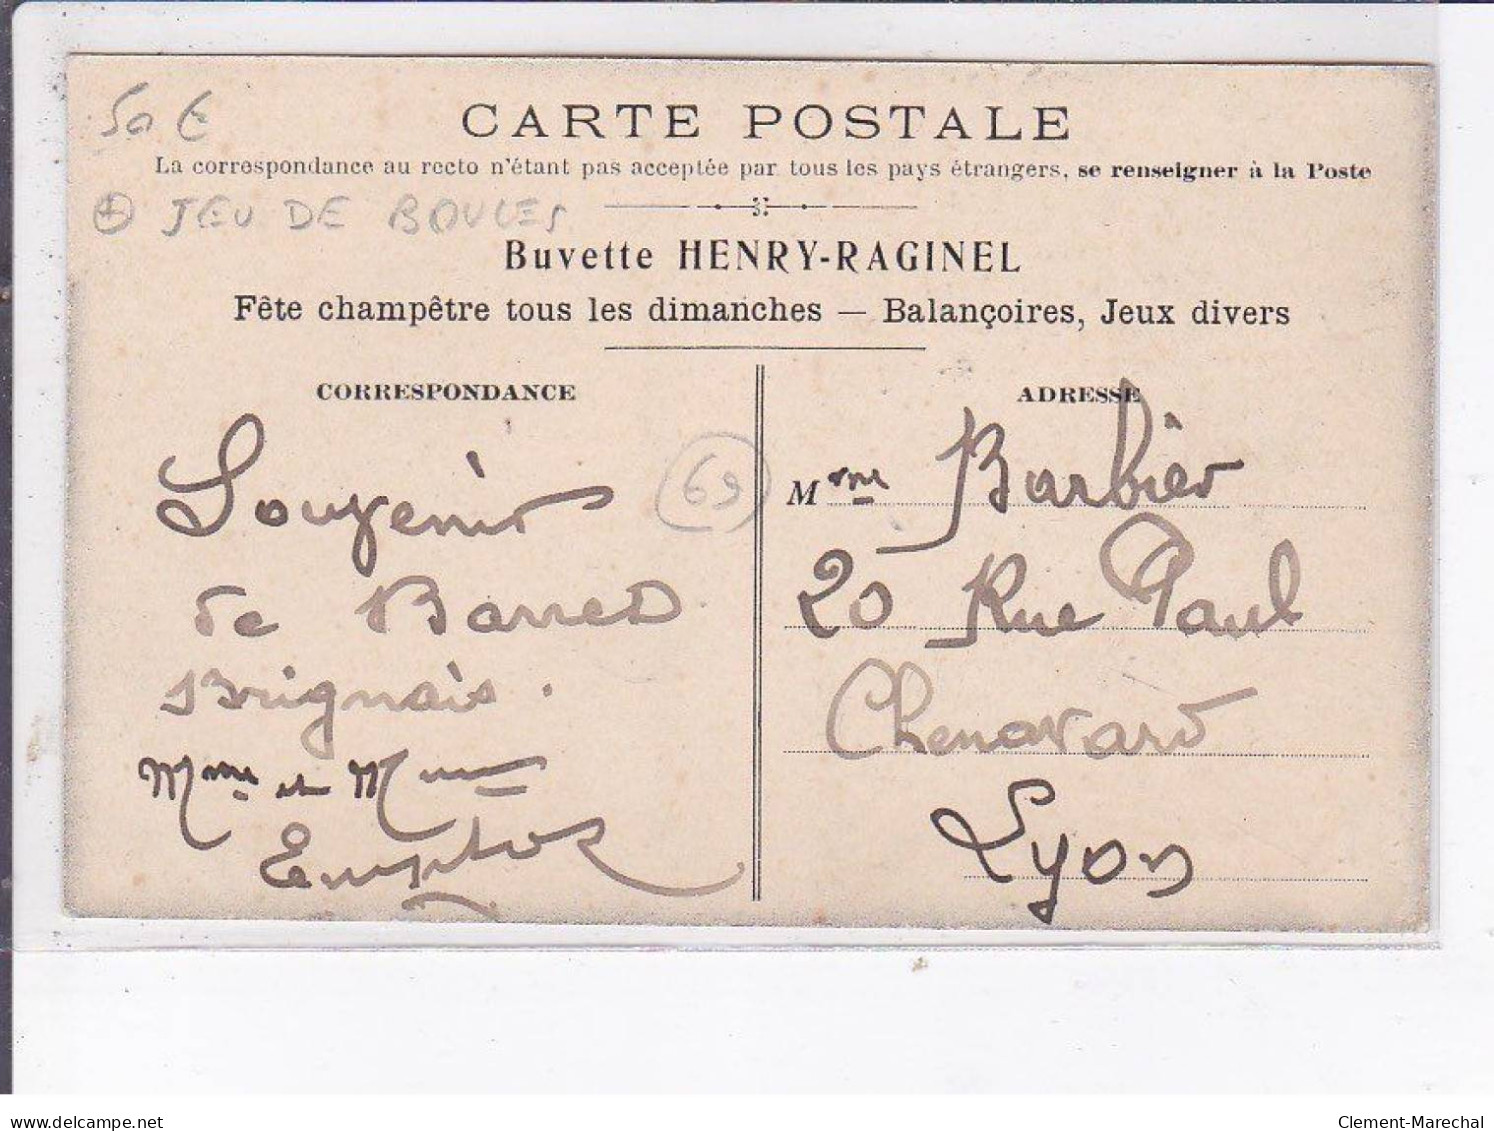 50 €
CARTE POSTALE
La correspondance au recto n'étant pas acceptée par tous les pays étrangers, se renseigner à la Poste
JEU DE BOULES
Buvette HENRY-RAGINEL
Fête champêtre tous les dimanches — Balançoires, Jeux divers
CORRESPONDANCE
Souvenir
de Barret
Brignais.
Mme et M
69
ADRESSE
Mme Barbier
20 Rue Paul
Chenavard
Lyon
delcampe.net
Clement-Marechal